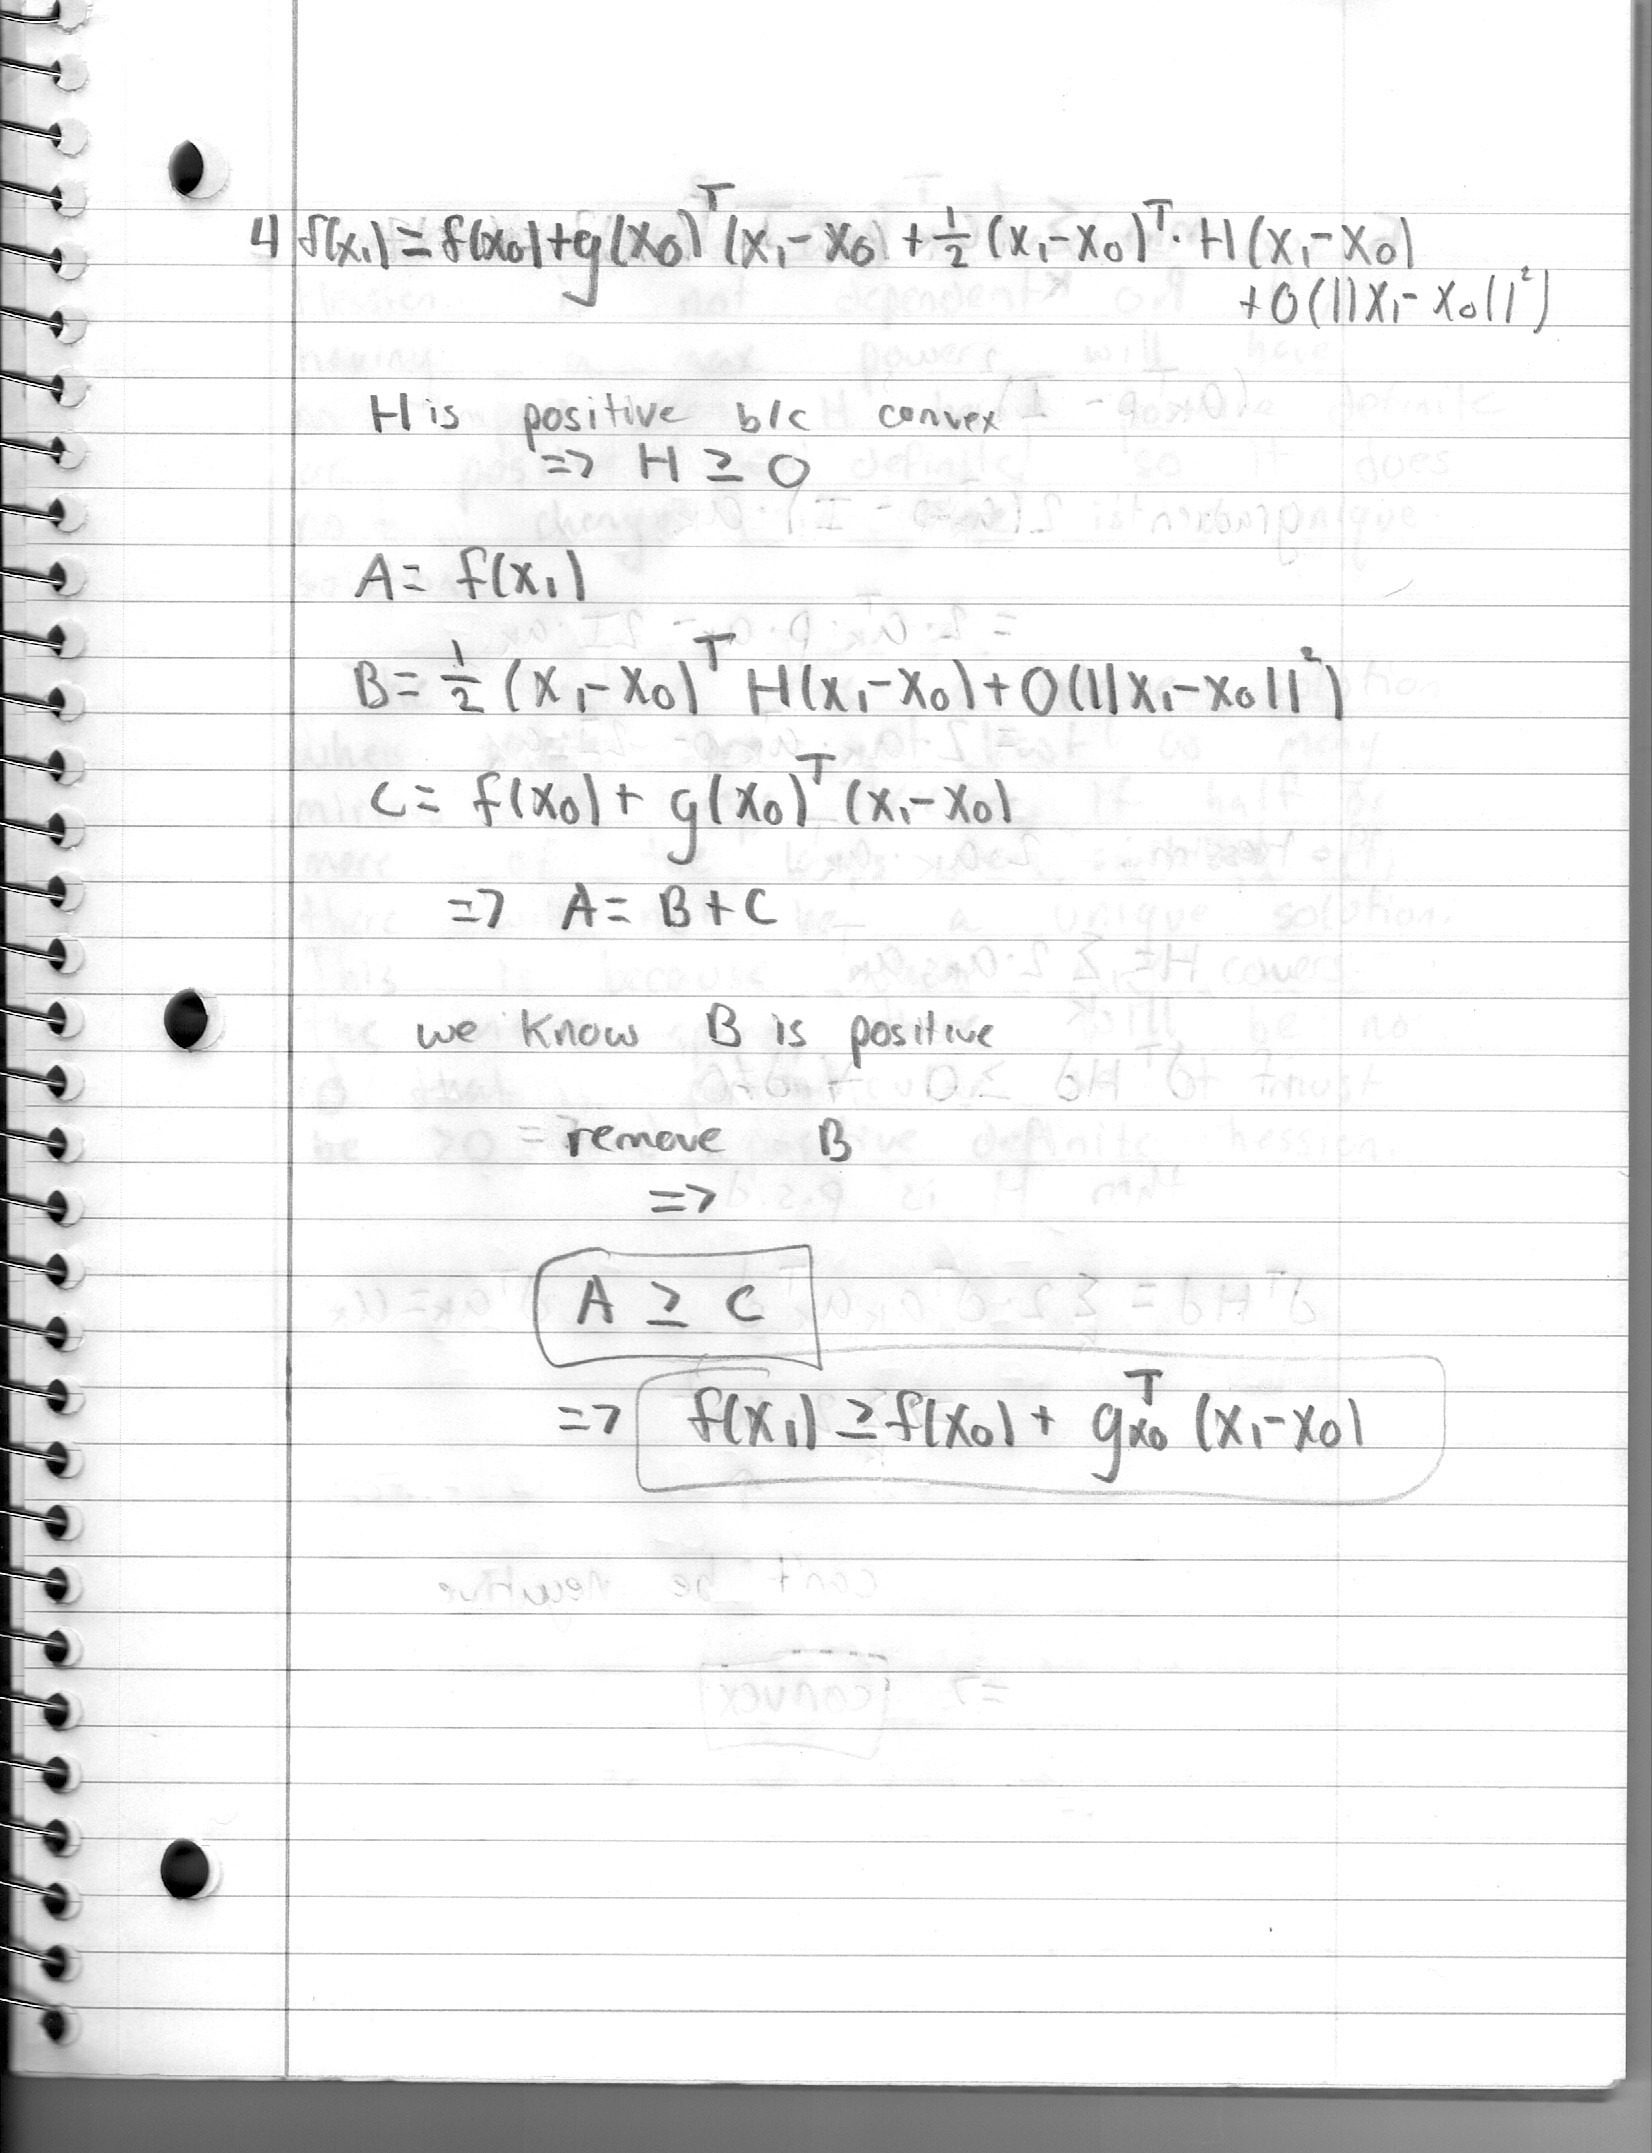 4 f(x₁) = f(x₀) + g(x₀)ᵀ (x₁ - x₀) + 1/2 (x₁ - x₀)ᵀ · H(x₁ - x₀)
+ O(||x₁ - x₀||²)
H is positive b/c convex
=> H ≥ 0
A = f(x₁)
B = 1/2 (x₁ - x₀)ᵀ H(x₁ - x₀) + O(||x₁ - x₀||²)
C = f(x₀) + g(x₀)ᵀ (x₁ - x₀)
=> A = B + C
we know B is positive
= remove B
=>
A ≥ C
=> f(x₁) ≥ f(x₀) + gₓ₀ᵀ (x₁ - x₀)